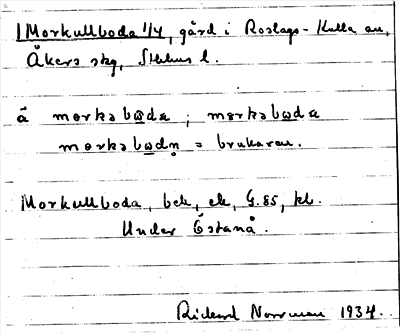 Morkullboda 1/4, gård i Roslags-Kulla sn,
Åkers skg, Sthlms l.
å morkəbωdα ; mɷrkəbωdα
morkəbωdn̥ = brukaren.
Morkullboda, beb, ek, G. 85, kb.
Under Östanå.
Rickard Norrman 1934.